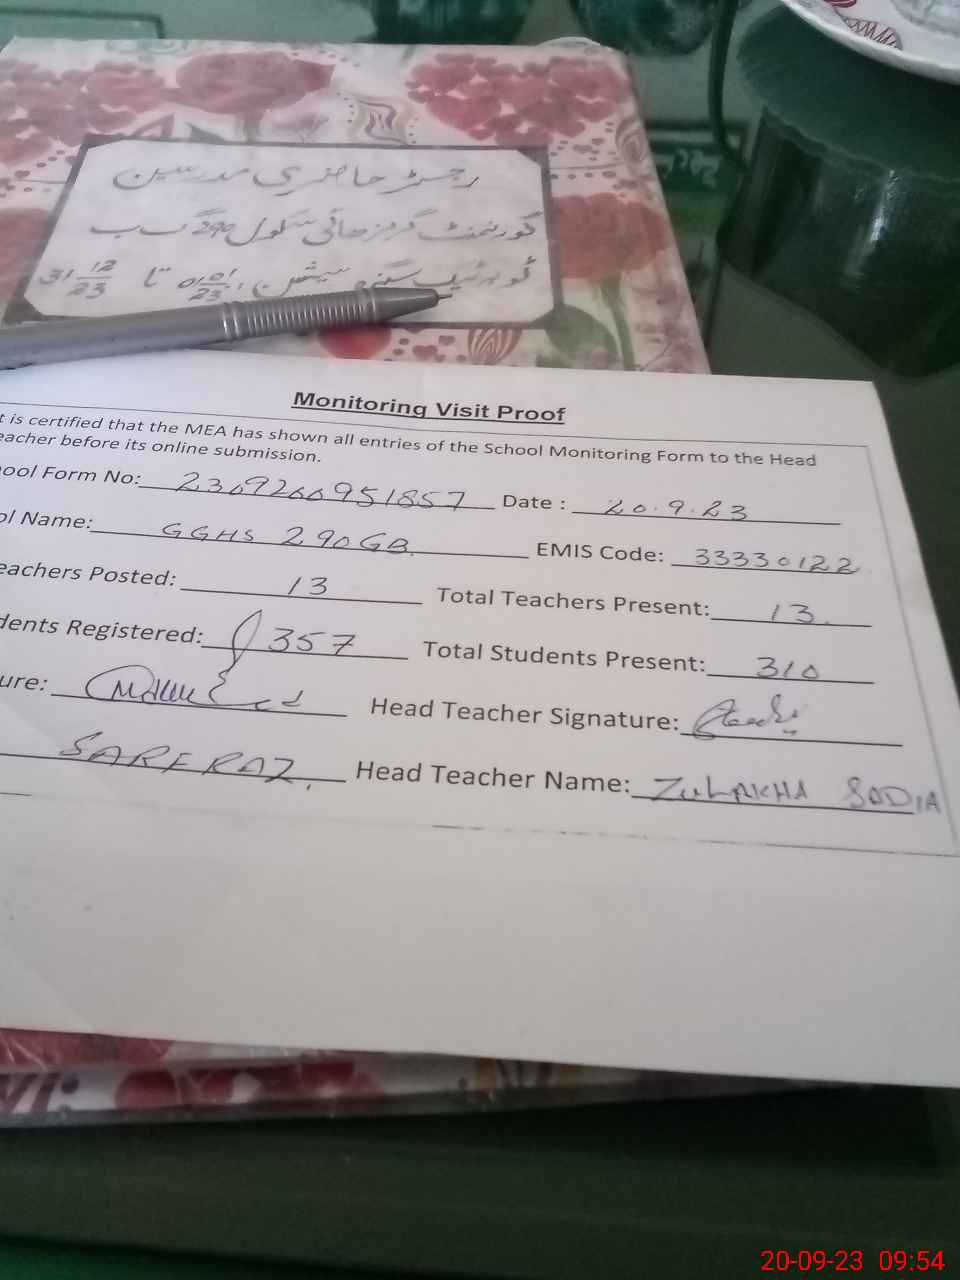 رجسٹر حاضری مدرسین
گورنمنٹ گرلز ہائی سکول 290 گ ب
ٹوبہ ٹیک سنگھ سیشن 01/01/23 تا 31 12/23
Monitoring Visit Proof
t is certified that the MEA has shown all entries of the School Monitoring Form to the Head
eacher before its online submission.
ool Form No: 2309200951857 Date : 20.9.23
ol Name: GGHS 290 GB EMIS Code: 33330122
eachers Posted: 13 Total Teachers Present: 13
dents Registered: 357 Total Students Present: 310
ure: Head Teacher Signature:
SARFRAZ Head Teacher Name: ZULAIKHA SADIA
20-09-23 09:54